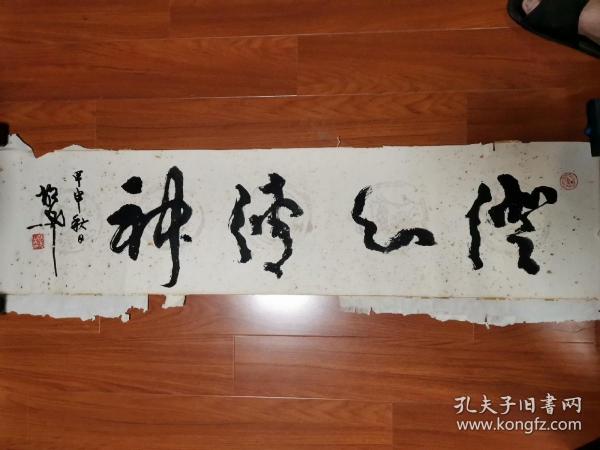 澄心清神
甲申秋日
孔夫子旧书网
www.kongfz.com